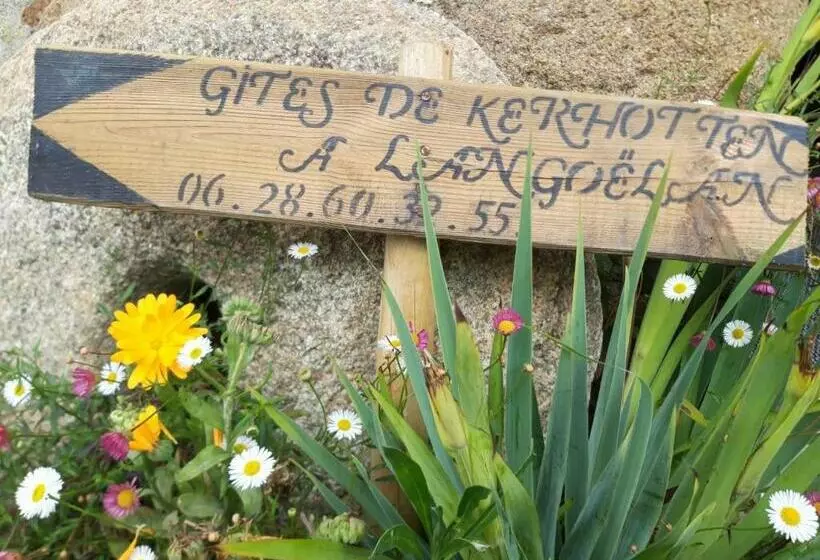 GiTES DE KERHOTTEN
A LANGOËLAN
06.28.60.32.55